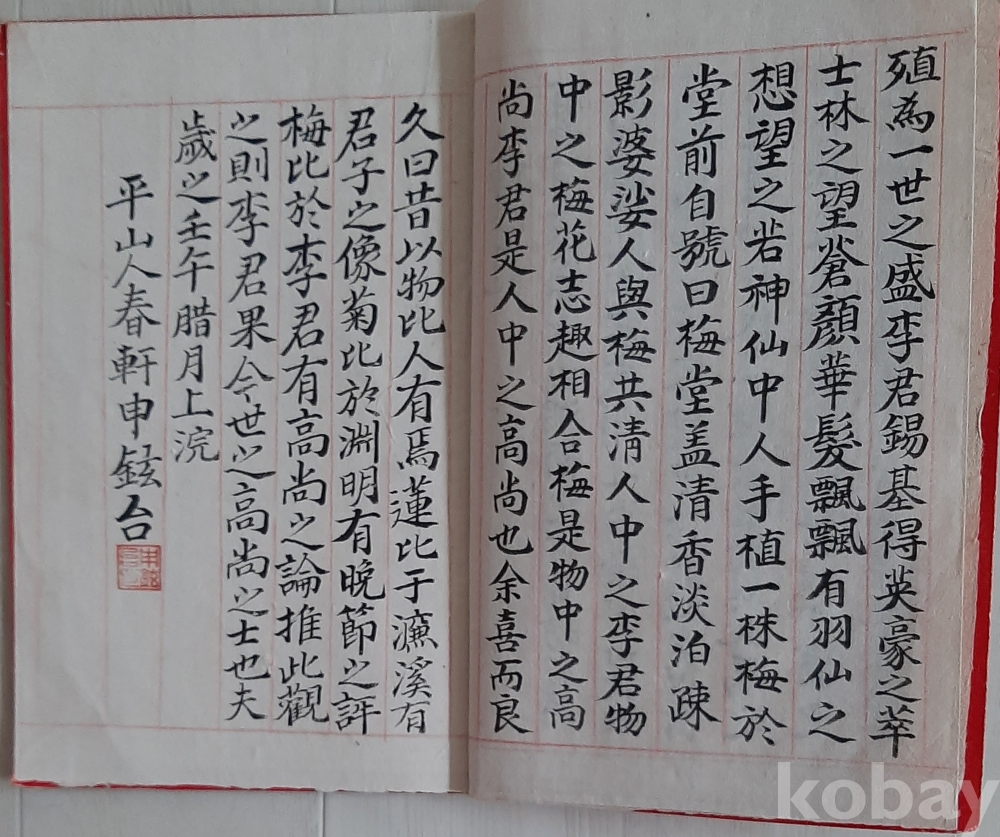 殖為一世之盛李君錫基得英豪之萃
士林之望蒼顏華髮飄飄有羽仙之
想望之若神仙中人手植一株梅於
堂前自號曰梅堂盖清香淡泊疎
影婆娑人與梅共清人中之李君物
中之梅花志趣相合梅是物中之高
尚李君是人中之高尚也余喜而良
久曰昔以物比人有焉蓮比于濂溪有
君子之像菊比於淵明有晩節之評
梅比於李君有高尚之論推此觀
之則李君果今世之高尚之士也夫
歲之壬午腊月上浣
平山人春軒申鉉台
kobay